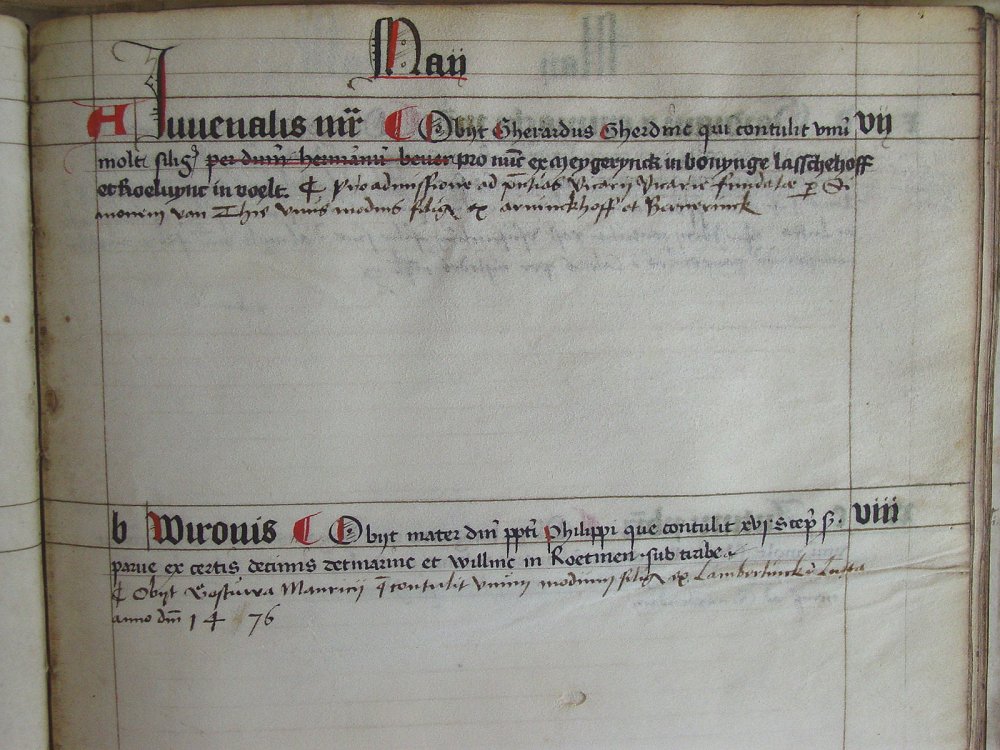 Maij
A Juuenalis mr̄ Obijt Gherardus Gherdinc qui contulit vnū vij
molt silig̃ per dn̄m hermānū beuer pro nūc ex meygerynck in bonynge lasschehoff
et Roeluync in voelt. Pro admissione ad p̄ntias vicarii vicarie fundatae per Si
monem van Thie vnius modius silig̃ ex arninckhoff et Bernerinck
b Wironis Obijt mater dn̄i ppt̄i Philippi que contulit xvj scep̄ s̄. viii
parue ex certis decimis Detmarinc et Willinc in Roetmen sub tribe
Obijt Mauricij q̄ contulit vnum modium silig̃ ex Lambertinck
anno dn̄i 1476